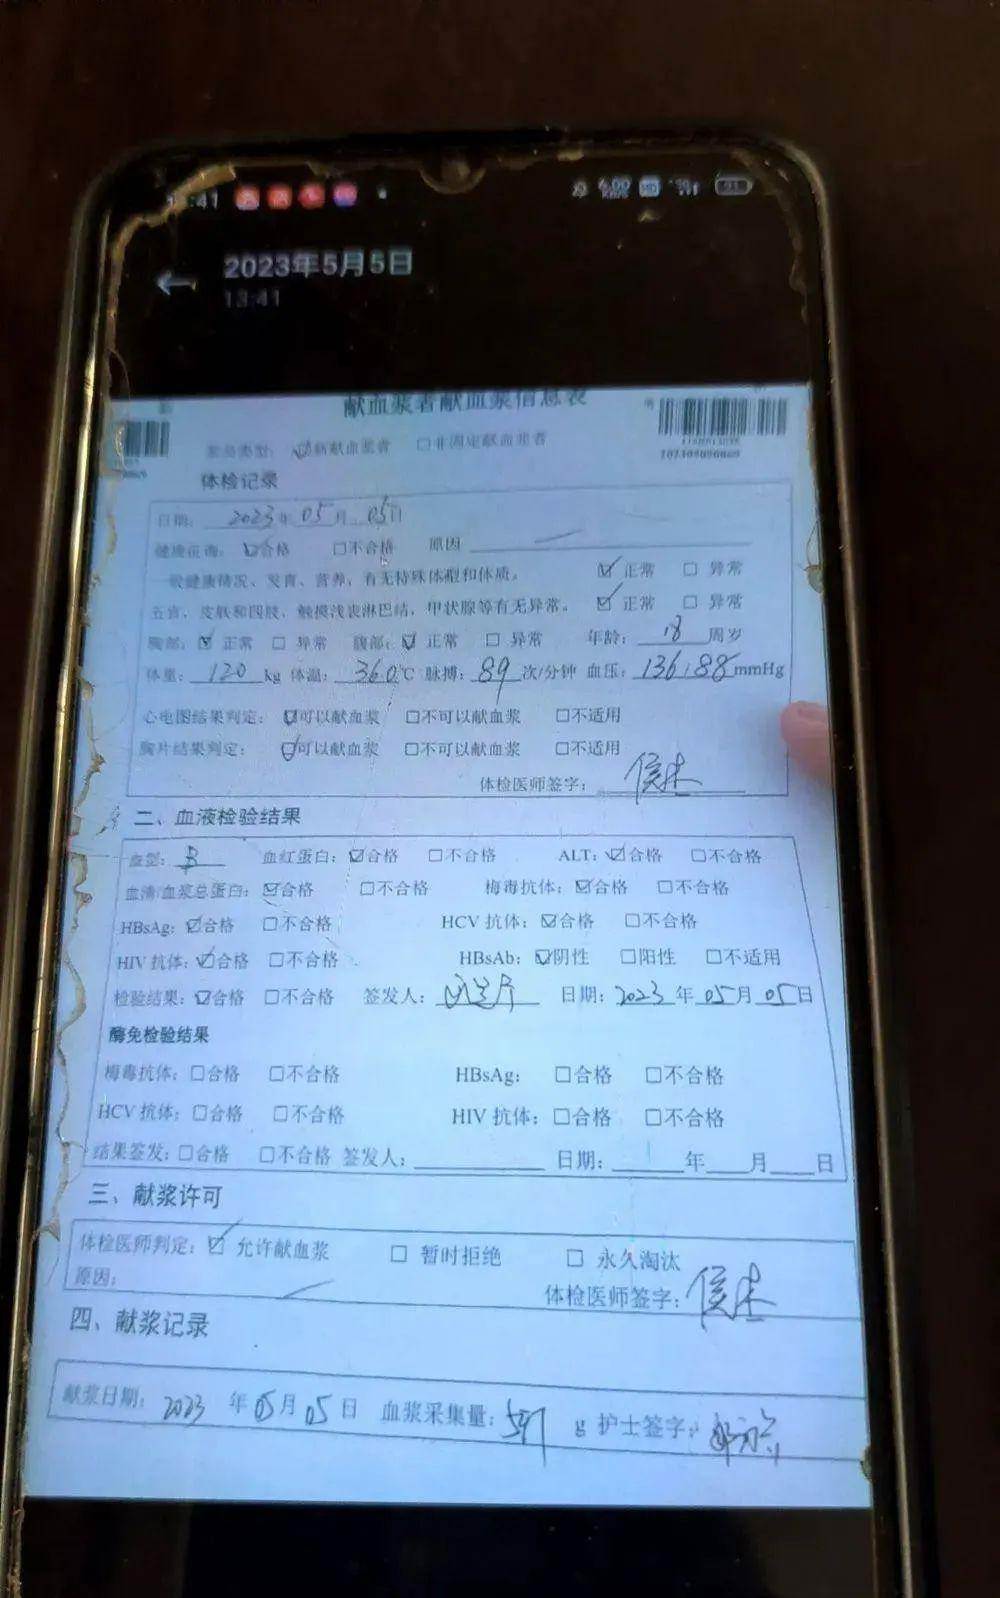 2023年5月5日
13:41
献血浆者献血浆信息表
浆员类型: ☑新献血浆者 □非固定献血浆者
体检记录
日期: 2023年05月05日
健康征询: ☑合格 □不合格 原因
一般健康情况、发育、营养,有无特殊体型和体质。 ☑正常 □异常
五官、皮肤和四肢,触摸浅表淋巴结,甲状腺等有无异常。 ☑正常 □异常
胸部: ☑正常 □异常 腹部: ☑正常 □异常 年龄: 18 周岁
体重: 120 kg 体温: 36.0℃ 脉搏: 89 次/分钟 血压: 136/88 mmHg
心电图结果判定: ☑可以献血浆 □不可以献血浆 □不适用
胸片结果判定: ☑可以献血浆 □不可以献血浆 □不适用
体检医师签字:
二、血液检验结果
血型: B 血红蛋白: ☑合格 □不合格 ALT: ☑合格 □不合格
血清/血浆总蛋白: ☑合格 □不合格 梅毒抗体: ☑合格 □不合格
HBsAg: ☑合格 □不合格 HCV 抗体: ☑合格 □不合格
HIV 抗体: ☑合格 □不合格 HBsAb: ☑阴性 □阳性 □不适用
检验结果: ☑合格 □不合格 签发人: 日期: 2023年05月05日
酶免检验结果
梅毒抗体: □合格 □不合格 HBsAg: □合格 □不合格
HCV 抗体: □合格 □不合格 HIV 抗体: □合格 □不合格
结果签发: □合格 □不合格 签发人: 日期: 年 月 日
三、献浆许可
体检医师判定: ☑允许献血浆 □暂时拒绝 □永久淘汰
原因:
体检医师签字:
四、献浆记录
献浆日期: 2023年05月05日 血浆采集量: g 护士签字: